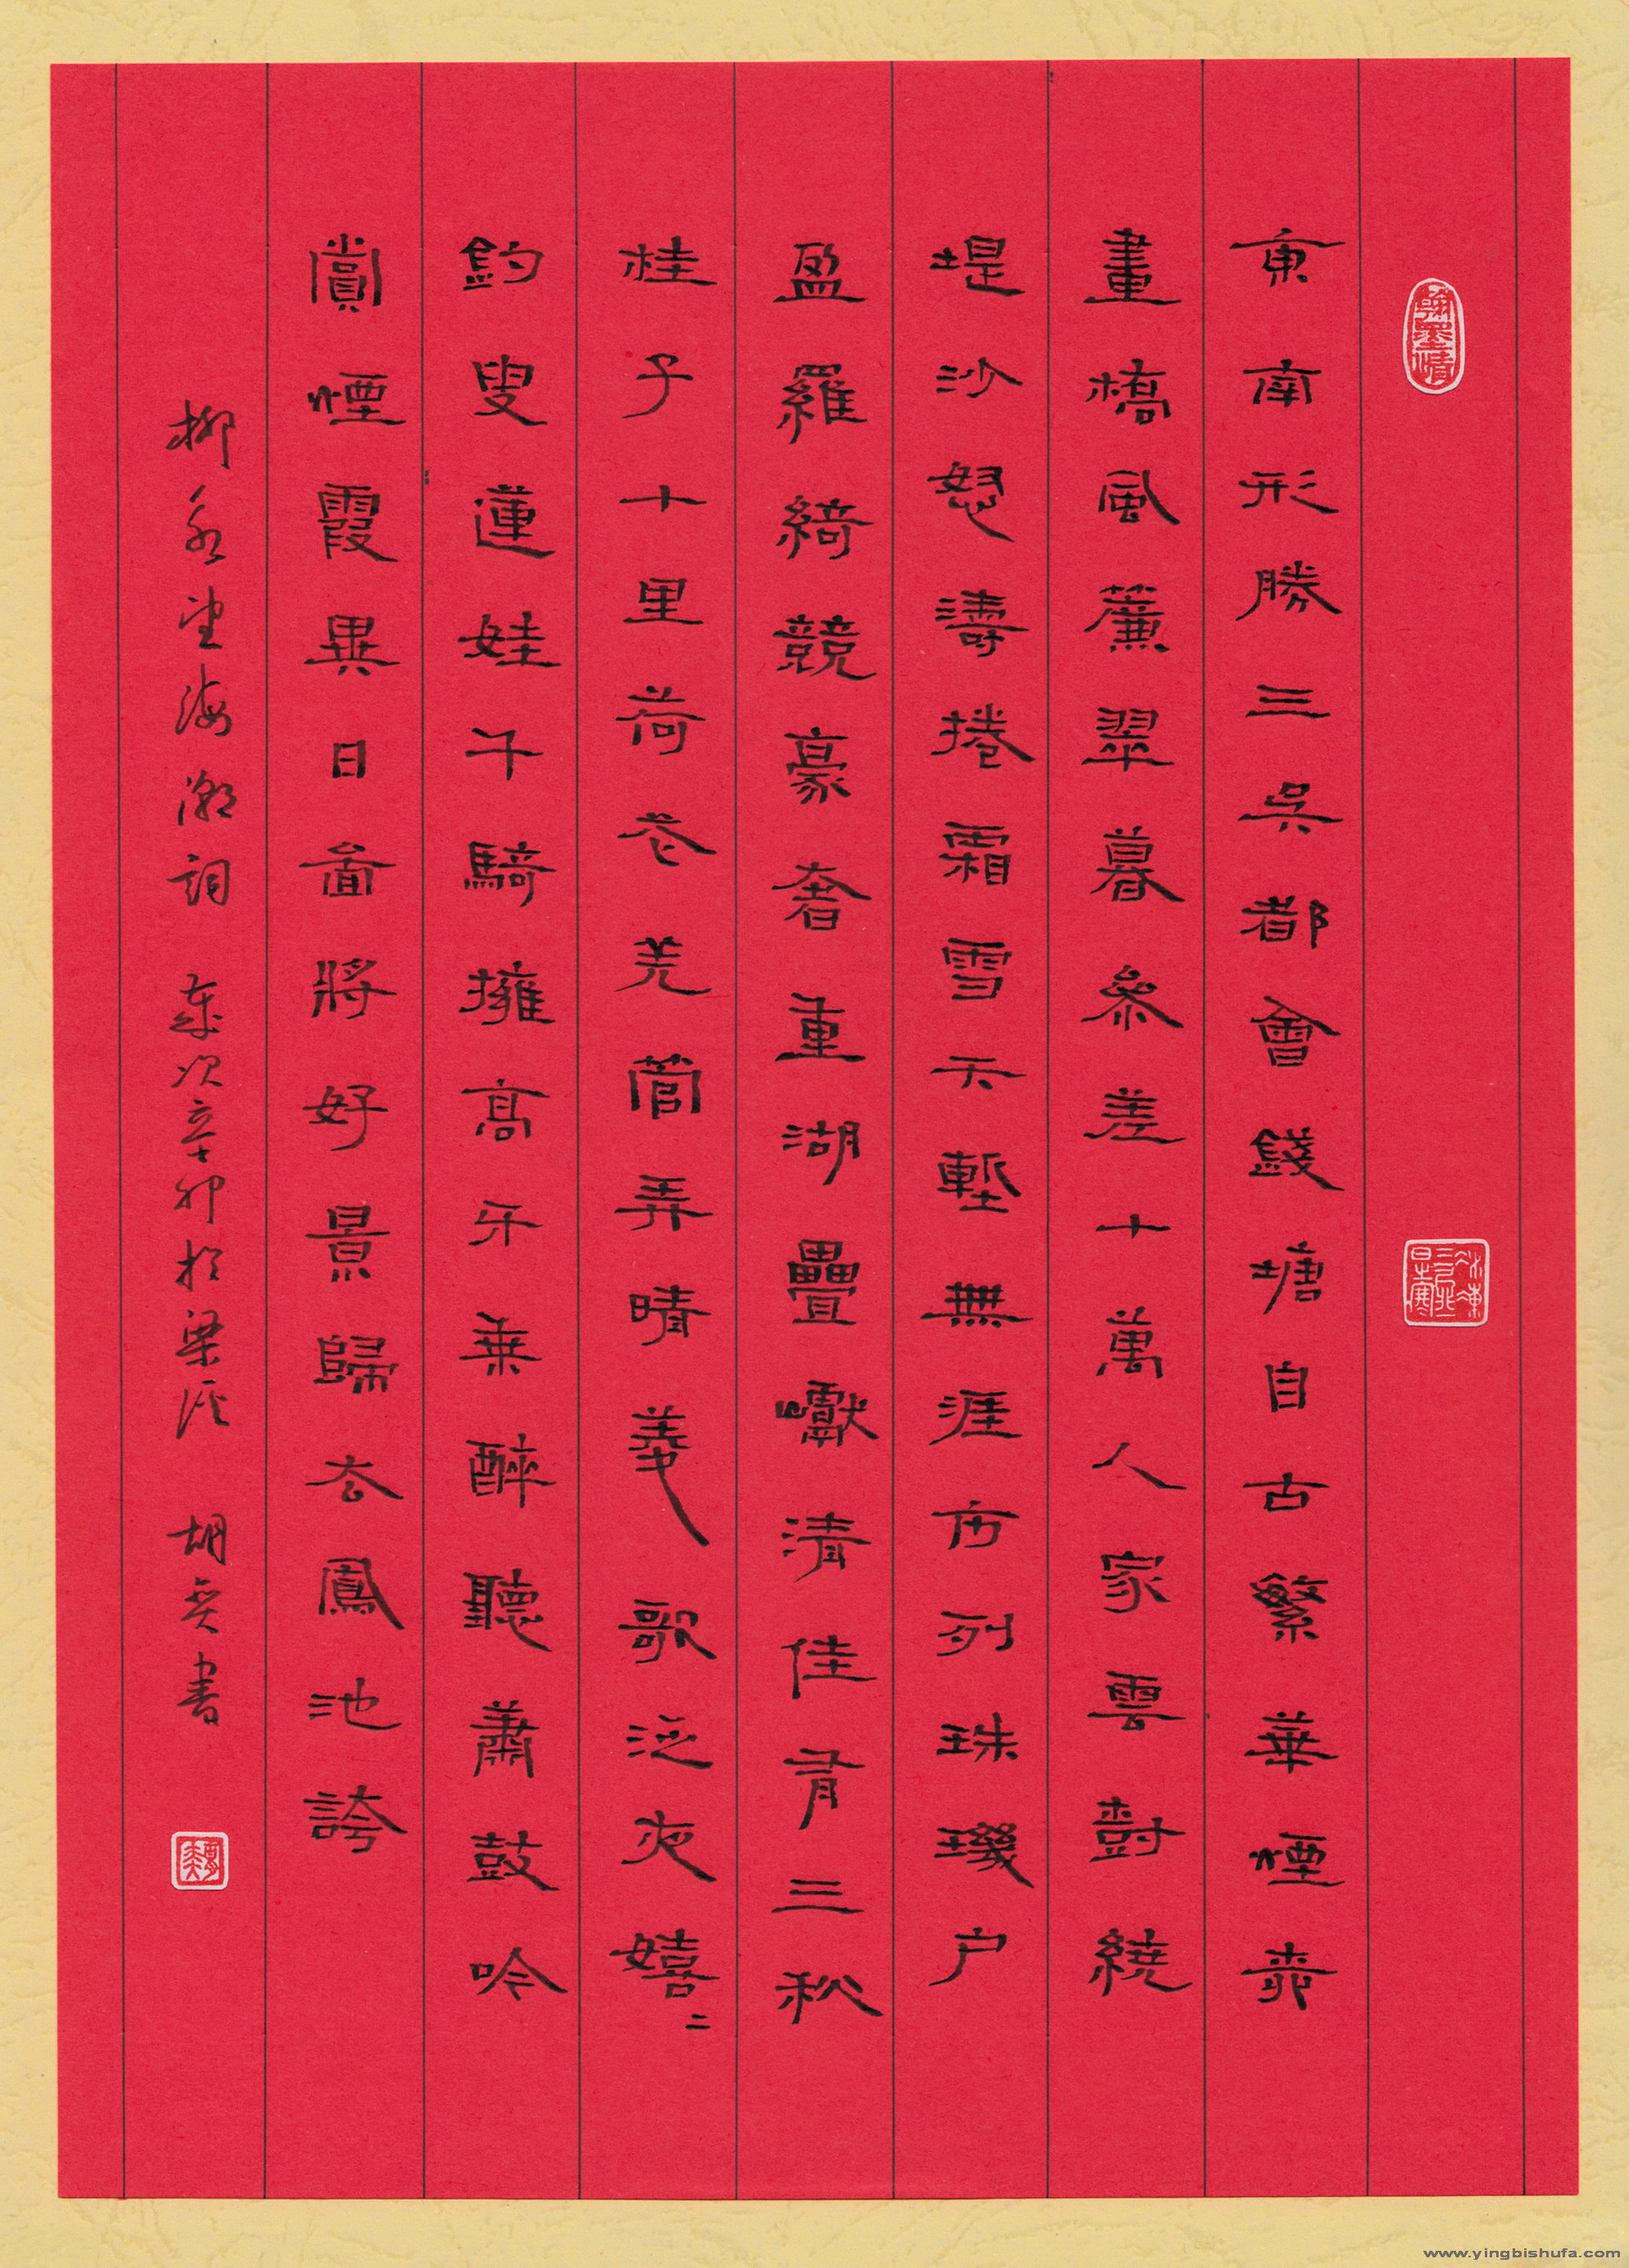 翰墨情
冰凍三尺非一日之寒
東南形勝三吳都會錢塘自古繁華煙柳
畫橋風簾翠暮參差十萬人家雲樹繞
堤沙怒濤捲霜雪天塹無涯市列珠璣户
盈羅綺競豪奢重湖疊巘清佳有三秋
桂子十里荷花羌管弄晴菱歌泛夜嬉二
釣叟蓮娃千騎擁高牙乘醉聽蕭鼓吟
賞煙霞異日圖將好景歸去鳳池誇
柳永望海潮詞 歲次辛卯於梁溪 胡奕書
www.yingbishufa.com